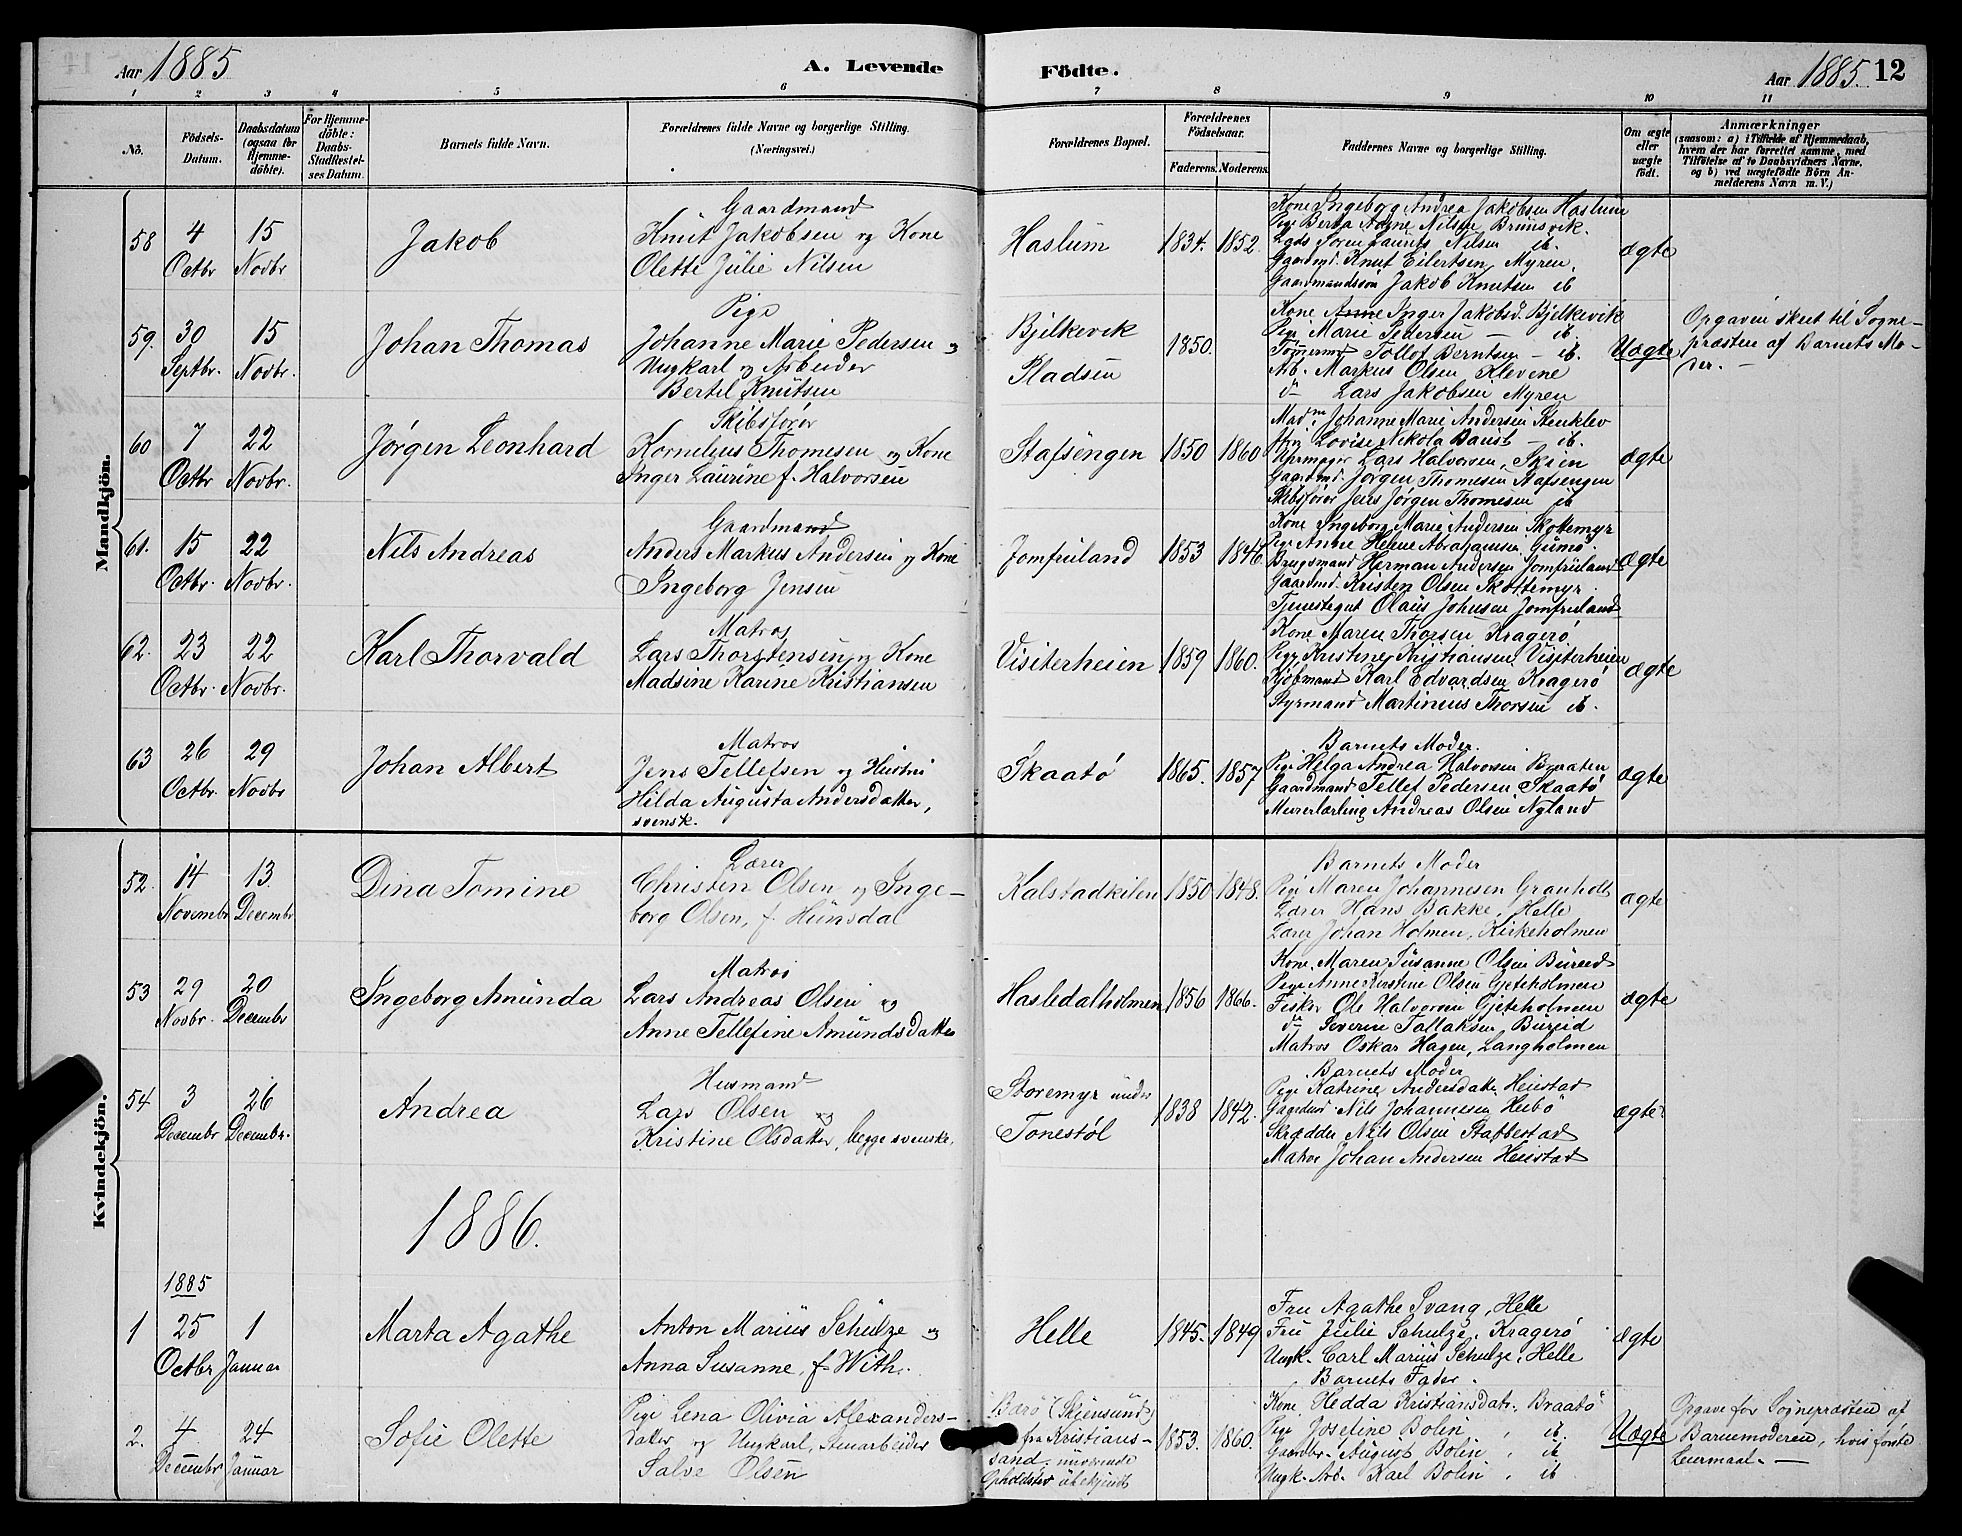 Aar 1885
A. Levende
Födte.
Aar 1885. 12
1 2 3 4 5 6 7 8 9 10 11
No.
Födsels-
Datum.
Daabsdatum
(ogsaa for
Hjemme-
döbte).
For Hjemme-
döbte:
Daabs-
Stadfæstel-
ses Datum.
Barnets fulde Navn.
Forældrenes fulde Navne og borgerlige Stilling.
(Næringsvei.)
Forældrenes Bopæl.
Forældrenes
Födselsaar.
Faderens. Moderens.
Faddernes Navne og borgerlige Stilling.
Om ægte
eller
uægte
födt.
Anmærkninger
(saasom: a) i Tilfælde af Hjemmedaab,
hvem der har forrettet samme, med
Tilföielse af to Daabsvidners Navne,
og b) ved uægtefödte Börn An-
melderens Navn m. V.)
Mandkjön.
58
4
Octbr
15
Novbr
Jakob
Gaardmand
Knut Jakobsen og Kone
Olette Julie Nilsen
Haslum
1834. 1852.
Kone Ingeborg Andrea Jakobsen Haslum
Pige Berta Nilsen Brunsvik.
Nilsen ib.
Gaardmd. Knut Eilertsen, Myren.
Gaardmandssön Jakob Knutsen ib
ægte
59.
30
Septbr.
15
Novbr.
Johan Thomas
Pige
Johanne Marie Pedersen og
Ungkarl og Arbeider
Bertel Knutsen
Bjelkevik
Pladsen
1850.
Kone Anne Inger Jakobsd. Bjelkevik
Pige Marie Pedersen — ib
Tømermd Tollof Berntsen — ib.
Arb. Markus Olsen Klevene
do Lars Jakobsen Myren
Uægte
Opgaven skeet til Sogne-
præsten af Barnets Mo-
der. —
60
7
Octbr
22
Novbr.
Jørgen Leonhard
Skibsfører
Kornelius Thomesen og Kone
Inger Laurine f. Halvorsen
Stafsengen
1850 1860
Madm. Johanne Marie Andersen Stenklev
Lovise Nikola — ib.
Lars Halvorsen, Skien
Gaardmd. Jørgen Thomesen Stafsengen
Skibsfører Jens Jørgen Thomesen ib
ægte
61.
15
Octbr.
22
Novbr.
Nils Andreas
Gaardmand
Anders Markus Andersen og Kone
Ingeborg Jensen
Jomfruland
1853 1846.
Kone Ingeborg Marie Andersen Skottemyr
Pige Anne Helene Abrahamsen Gumø.
Brugsmand Herman Andersen Jomfruland
Gaardmd. Kristen Olsen Skottemyr.
Tjenestegut Olaus Johnsen Jomfruland
ægte
62.
23
Octbr.
22
Novbr.
Karl Thorvald
Matros
Lars Thorstensen og Kone
Madsine Karine Kristiansen
Visiterheien
1859 1860.
Kone Maren Thorsen Kragerö
Pige Kristine Kristiansen Visiterheien
Kjöbmand Karl Edvardsen Kragerö
Styrmand Martinius Thorsen ib.
ægte
63
26
Octbr.
29
Novbr
Johan Albert
Matros
Jens Tellefsen og Hustru
Hilda Augusta Andersdatter,
svensk.
Skaatö
1865. 1857
Barnets Moder.
Pige Helga Andrea Halvorsen Byraaten
Gaardmand Tellef Pedersen Skaatö
Murerlærling Andreas Olsen Nyland
ægte
Kvindekjön.
52.
14
Novembr
13
Decembr
Dina Tomine
Lærer
Christen Olsen og Inge-
borg Olsen, f. Hunsdal
Kalstadkilen
1850 1848.
Barnets Moder
Pige Maren Johannesen Granholt
Lærer Hans Bakke, Helle
Lærer Johan Holmen, Kirkeholmen
ægte
53
29
Novbr.
20
Decembr
Ingeborg Amunda
Matros
Lars Andreas Olsen og
Anne Tellefine Amundsdatter
Hasledalholmen
1856 1866.
Kone. Maren Susanne Olsen Bureid
Pige Anne Kirstine Olsen Gjeteholmen
Fisker Ole Halvorsen Gjeteholmen
do Severin Tallaksen Bureid
Matros Oskar Hagen, Langholmen
ægte
54
3
Decembr
26
Decembr.
Andrea
Husmand
Lars Olsen og
Kristine Olsdatter, begge svenske.
Storemyr under
Tonestöl
1838 1842.
Barnets Moder
Pige Katrine Andersdatt. Heistad
Gaardmd Nils Johannesen Heibö
Skrædder Nils Olsen Stabbestad
Matros Johan Andersen Heistad
ægte
1886.
1
1885
25
Octbr
1
Januar
Marta Agathe
Anton Marius Schulze og
Anna Susanne, f. With.
Helle
1845. 1849
Fru Agathe Svang, Helle
Fru Julie Schulze, Kragerö
Ungk. Carl Marius Schulze, Helle
Barnets Fader.
ægte
2.
4
Decembr
24
Januar
Sofie Olette
Pige Lena Olivia Alexanders-
datter og Ungkarl, Stenarbeider
Salve Olsen
Barö (Skjensund)
fra Kristians-
sand. nuværende
Opholdsted ubekjendt
1853. 1860.
Kone Hedda Kristiansdatr. Braatö
Pige Josefine Bolin, ib.
Gaardbr. August Bolin, ib
Ungk. Arb. Karl Bolin, ib
Uægte
Opgave for Sognepræsten af
Barnemoderen, hvis første
Leiermaal. —